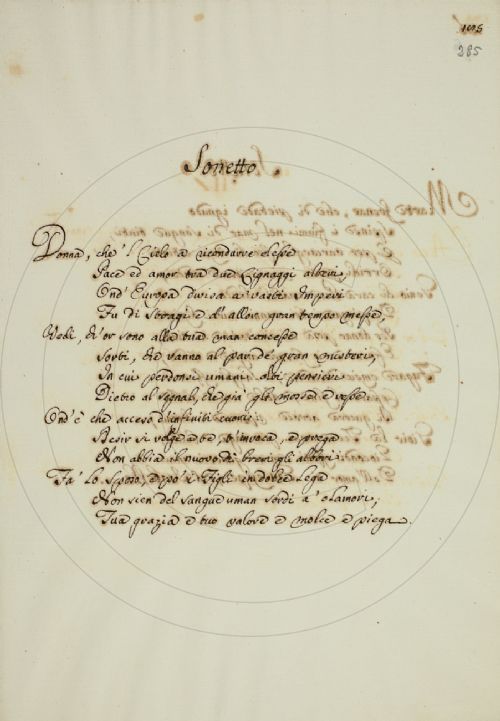 285
Sonetto.
Donna, che 'l Cielo a ricondurre elesse
Pace ed amor tra due Lignaggi alteri,
Ond' Europa divisa a vasti Imperi
Fu di stragi e d' allor gran tempo messe,
Vedi, ch' or sono alla tua man concesse
Sorti, che vanno al par de' gran misteri,
In cui perdonsi umani pensieri
Dietro al segnal, che già gli mosse e resse.
Ond' è che acceso d' infiniti
si volge a te, t' invoca, e prega
Non abbia il nuovo dì brevi gli albori.
Fa' lo sposo, e poi i Figli in dolce Lega
Non sien del sangue uman sordi a' clamori,
Tua grazia e tuo valore e molce e piega.